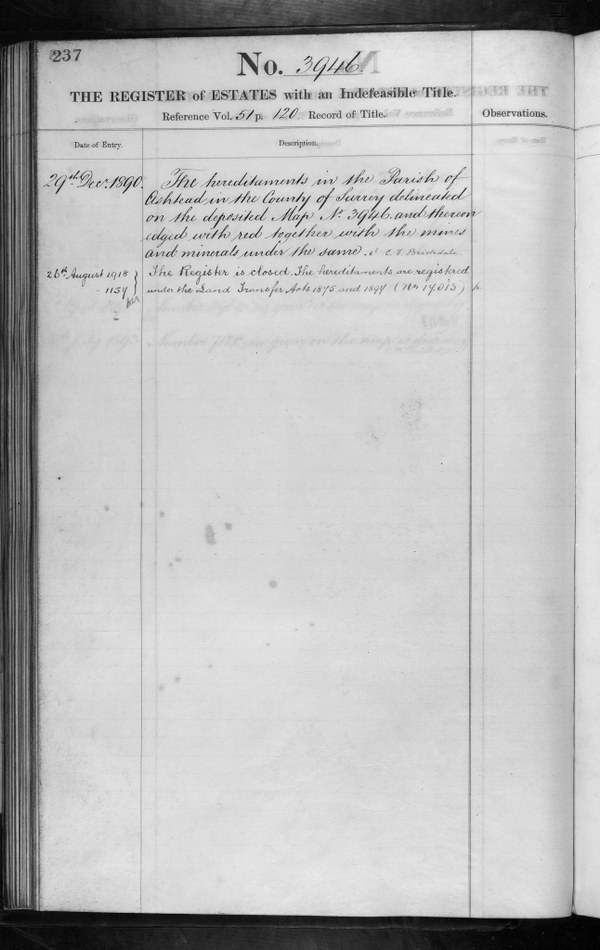 237
No. 3946
THE REGISTER of ESTATES with an Indefeasible Title.
Reference Vol. 51 p. 120 Record of Title.
Observations.
Date of Entry.
Description.
29th Decr. 1890.
The hereditaments in the Parish of
Ashtead in the County of Surrey delineated
on the deposited Map No. 3946 and thereon
edged with red together with the mines
and minerals under the same.
26th August 1918
1154
The Register is closed. The hereditaments are registered
under the Land Transfer Acts 1875 and 1897